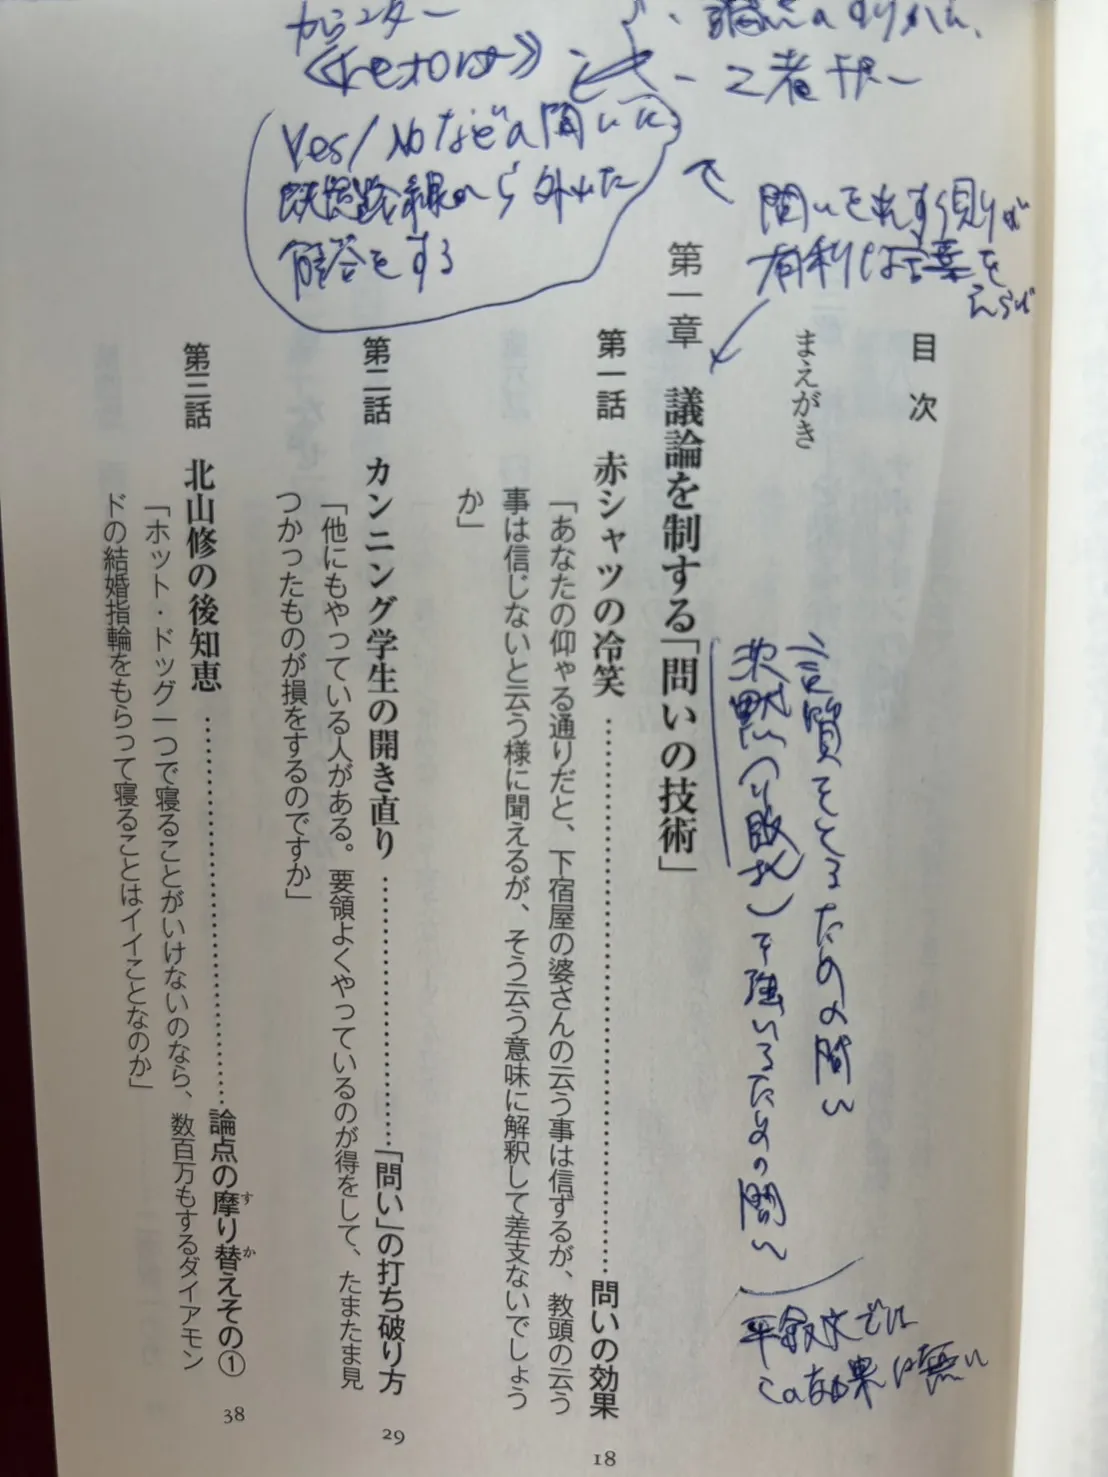 カウンター
《retorse》
・論点のすりかえ、
二者択一
Yes/Noなどの問いに
既定路線から外れた
解答をする
問いを出す側が
有利な言葉を
えらぶ
目次
まえがき
言質をとるための問い
沈黙(り敗北)を強いるための問い
平叙文では
この効果は無い
第一章 議論を制する「問いの技術」
第一話 赤シャツの冷笑……………………………問いの効果 18
「あなたの仰ゃる通りだと、下宿屋の婆さんの云う事は信ずるが、教頭の云う
事は信じないと云う様に聞えるが、そう云う意味に解釈して差支ないでしょう
か」
第二話 カンニング学生の開き直り……………………「問い」の打ち破り方 29
「他にもやっている人がある。要領よくやっているのが得をして、たまたま見
つかったものが損をするのですか」
第三話 北山修の後知恵……………………論点の摩り替えその① 38
「ホット・ドッグ一つで寝ることがいけないのなら、数百万もするダイアモン
ドの結婚指輪をもらって寝ることはイイことなのか」